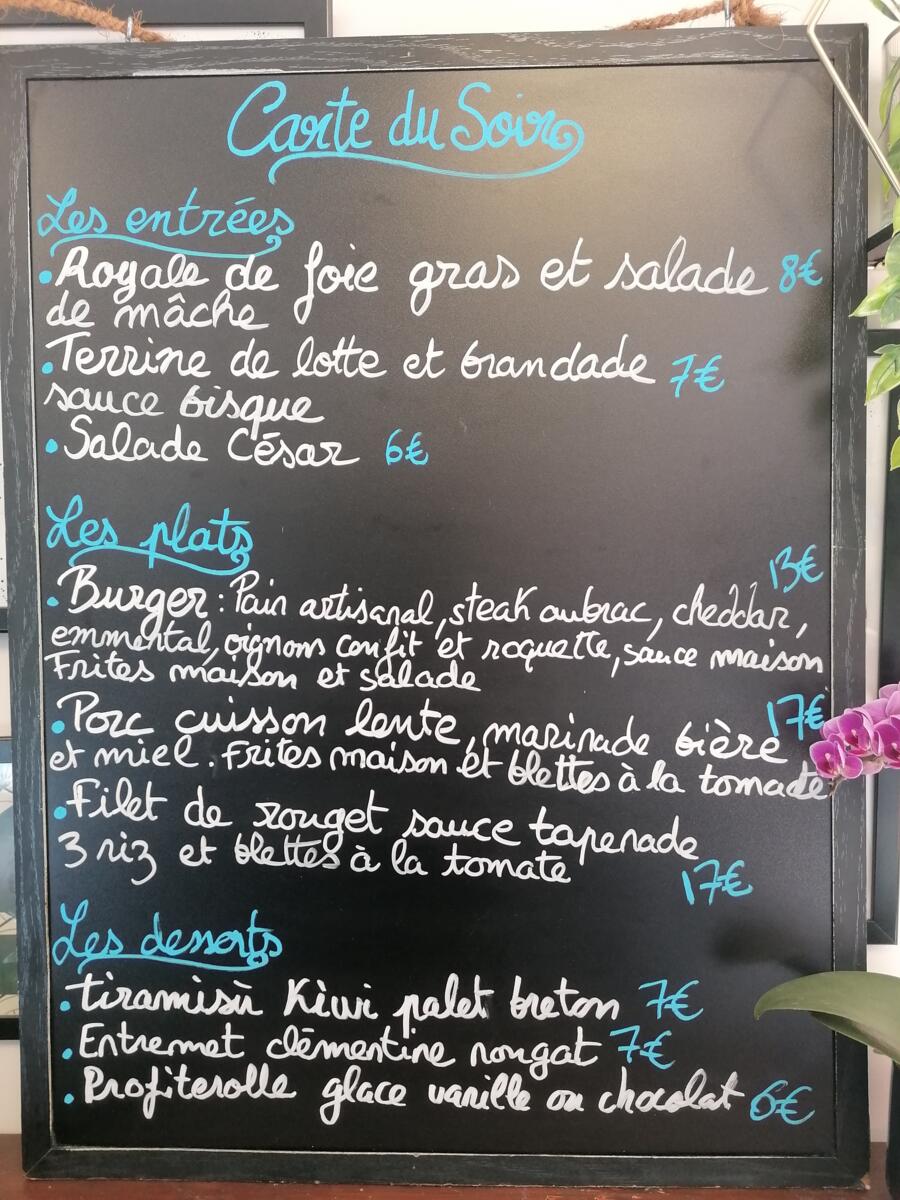 Carte du Soir
Les entrées
• Royale de foie gras et salade 8€
de mâche
• Terrine de lotte et brandade 7€
sauce bisque
• Salade César 6€
Les plats
13€
• Burger : Pain artisanal, steak aubrac, cheddar,
emmental, oignons confit et roquette, sauce maison
Frites maison et salade
17€
• Porc cuisson lente, marinade bière
et miel. Frites maison et blettes à la tomate
• Filet de rouget sauce tapenade
3 riz et blettes à la tomate
17€
Les desserts
• tiramisù Kiwi palet breton 7€
• Entremet clémentine nougat 7€
• Profiterolle glace vanille ou chocolat 6€